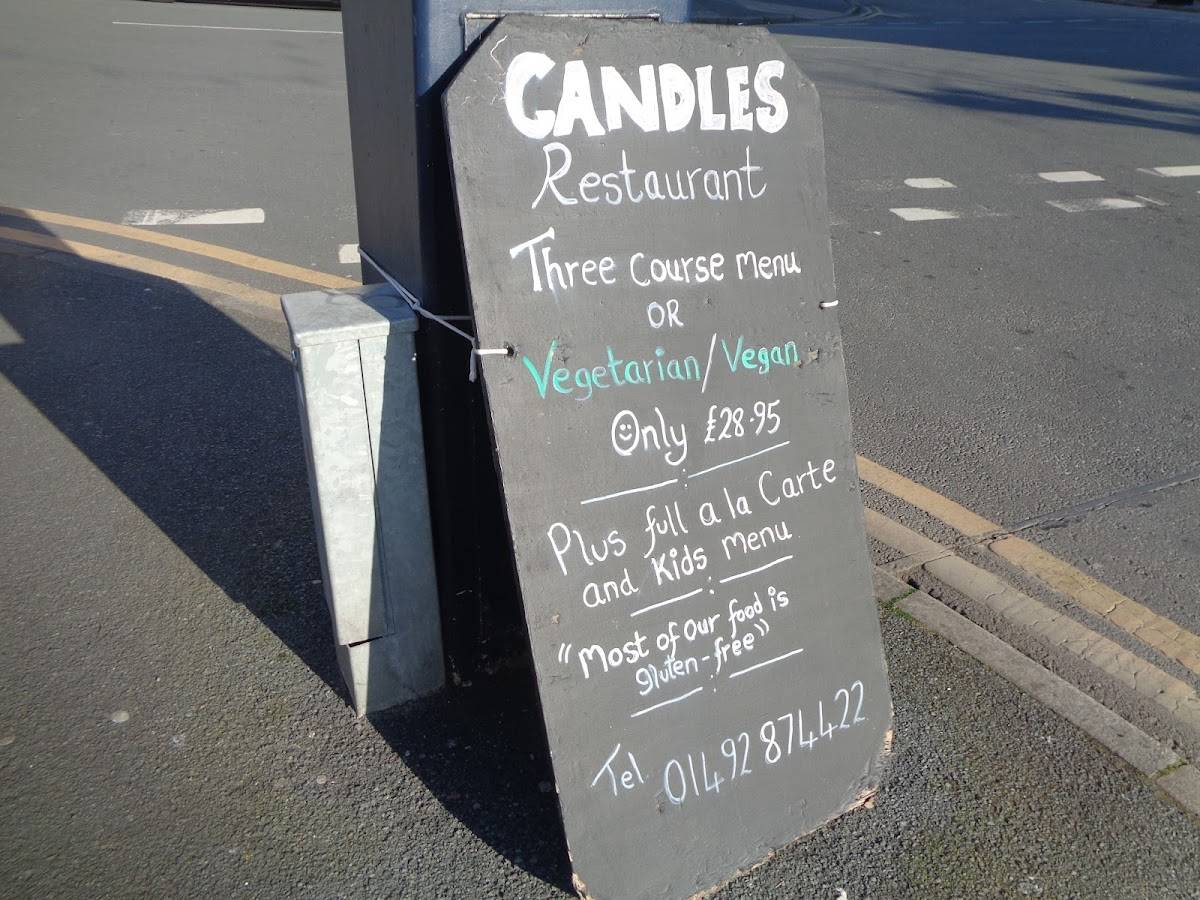 CANDLES
Restaurant
Three course menu
OR
Vegetarian/Vegan
Only £28.95
Plus full a la Carte
and Kids menu
"Most of our food is
gluten-free"
Tel 01492 874422